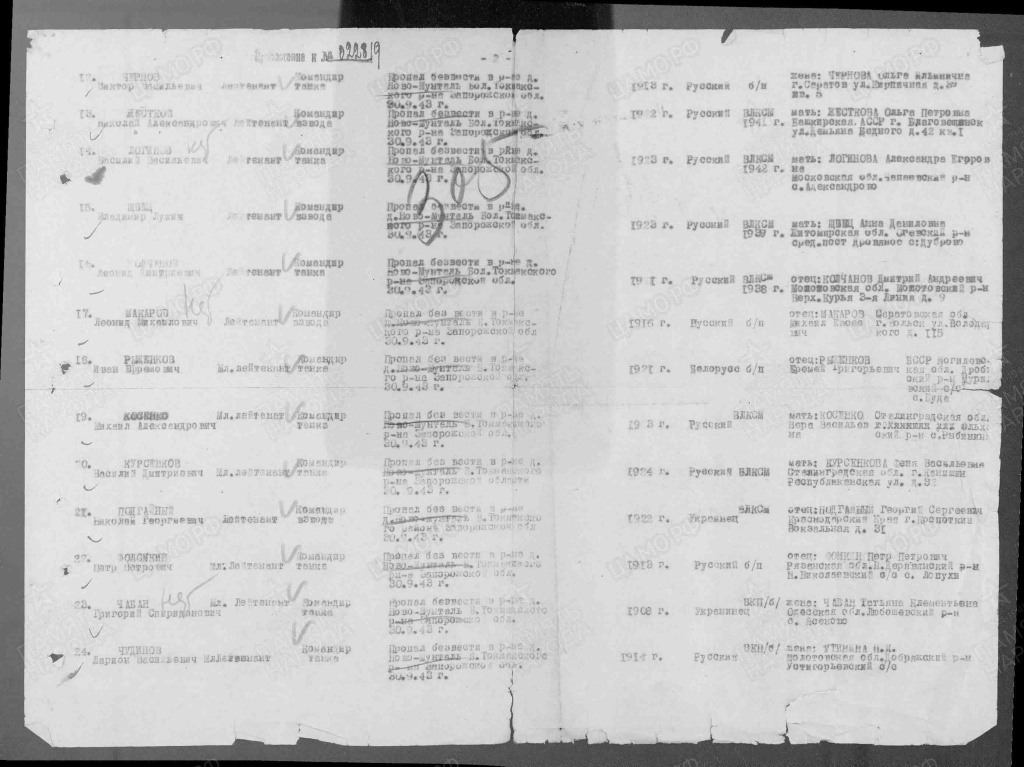 Приложение к № 022819
- 2 -
12. ЧЕРНОВ Командир Пропал безвести в р-не д. жена: ЧЕРНОВА Ольга
Виктор Васильевич Лейтенант танка Ново-Мунталь Бол.Токмакс- 1913 г. Русский б/п г.Саратов ул.Кирпичная
кого р-на Запорожской обл. кв. 5
30.9.43 г.
13. ЖЕСТКОВ Командир Пропал безвести в р-не д. ВЛКСМ мать: ЖЕСТКОВА Ольга Петровна
Николай Александрович Лейтенант взвода Ново-Мунталь Бол.Токмакс- Русский 1941 г. Башкирская АССР г. Благовещенск
кого р-на Запорожской обл. ул.Демьяна Бедного д.42 кв.1
30.9.43 г.
14. ЛОГИНОВ Командир Пропал безвести в р-не д. ВЛКСМ мать: ЛОГИНОВА Александра Егоров
Василий Васильевич Лейтенант танка Ново-Мунталь Бол.Токмакс- 1923 г. Русский 1942 г. на
кого р-на Запорожской обл. Московская обл. р-н
30.9.43 г. с.Александрово
305
15. ШВЕЦ Командир Пропал безвести в р-не
Владимир Лукич Лейтенант взвода д.Ново-Мунталь Бол.Токмакс- 1923 г. Русский ВЛКСМ мать: ШВЕЦ Анна Даниловна
кого р-на Запорожской обл. 1939 г. Житомирская обл. р-н
30.9.43 г. сред.пост с.Дуброво
16. КОЛЧАНОВ Командир Пропал безвести в р-не д.
Леонид Дмитриевич Лейтенант танка Ново-Мунталь Бол.Токмакского Русский ВЛКСМ отец:КОЛЧАНОВ Дмитрий Андреевич
р-на Запорожской обл. 1938 г. Молотовская обл. Молотовский р-н
30.9.43 г. Верх.Курья 3-я Линия д. 9
17. МАКАРОВ Командир Пропал без вести в р-не отец:МАКАРОВ Саратовская обл
Леонид Михайлович Лейтенант взвода д.Ново-Мунталь Б.Токмакс- 1916 г. Русский б/п Михаил г.Вольск ул.Володар
кого р-на Запорожской обл вич кого д. 115
30.9.43 г.
18. РЫЖЕНКОВ Командир Пропал без вести в р-не отец:РЫЖЕНКОВ БССР Могилевс-
Иван Ефремович Мл.лейтенант танка д.Ново-Мунталь Б.Токмакско- 1921 г. Белорусс б/п Ефрем Григорьевич кая обл.
го р-на Запорожской обл. ский р-н
30.9.43 г. с.Буда
19. КОСЕНКО Мл.лейтенант Командир Пропал без вести в р-не д. ВЛКСМ мать:КОСЕНКО Сталинградская обл.
Михаил Александрович танка Ново-Мунталь Б.Токмакского Русский Вера Васильев
р-на Запорожской обл. на ский р-н
30.9.43 г.
20. КУРСЕНКОВ Командир Пропал без вести в р-не д. мать: КУРСЕНКОВА Васильевна
Василий Дмитриевич Мл.лейтенант танка Ново-Мунталь Б.Токмакского 1924 г. Русский ВЛКСМ Сталинградская обл. г.Камышин
р-на Запорожской области Республиканская ул. д.
30.9.43 г.
21. ПОДГАЙНЫЙ Командир Пропал без вести в р-не ВЛКСМ отец:ПОДГАЙНЫЙ Георгий Сергеевич
Николай Георгиевич Лейтенант взвода д.Ново-Мунталь Б.Токмакско 1922 г. Украинец Краснодарский Край г.Кропоткин
го района Запорожской обл Вокзальная д. 31
30.9.43 г.
22. Командир Пропал без вести в р-не д. отец: Петр Петрович
Петр Петрович Мл.Лейтенант танка Ново-Мунталь Б.Токмакского 1913 г. Русский б/п Рязанская обл. р-н
р-на Запорожской обл. Н.Николаевский с/с с. Лопухи
30.9.43 г.
23. ЧАБАН Мл. Лейтенант Командир Пропал безвести в р-не д. ВКП/б/ жена: ЧАБАН Татьяна Клементьевна
Григорий Спиридонович танка Ново-Мунталь Б.Токмакского 1908 г. Украинец Одесская обл.Любошевский р-н
р-на Запорожской обл. с.
30.9.43 г.
24. ЧУДИНОВ Командир Пропал безвести в р-не д. ВКП/б/ жена:
Ларион Васильевич Мл.Лейтенант танка Ново-Мунталь Б.Токмакского 1914 г. Русский Молотовская обл.Добрянский р-н
р-на Запорожской обл. с/с
30.9.43 г.